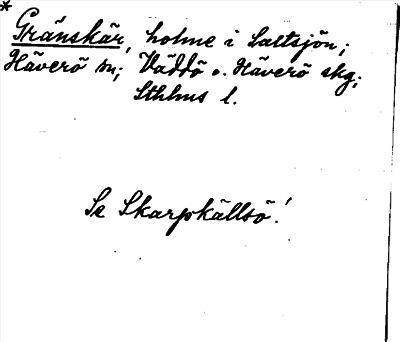 * Gränskär, holme i Saltsjön;
Häverö sn; Väddö o. Häverö skg;
Sthlms l.
Se Skarpkällsö!